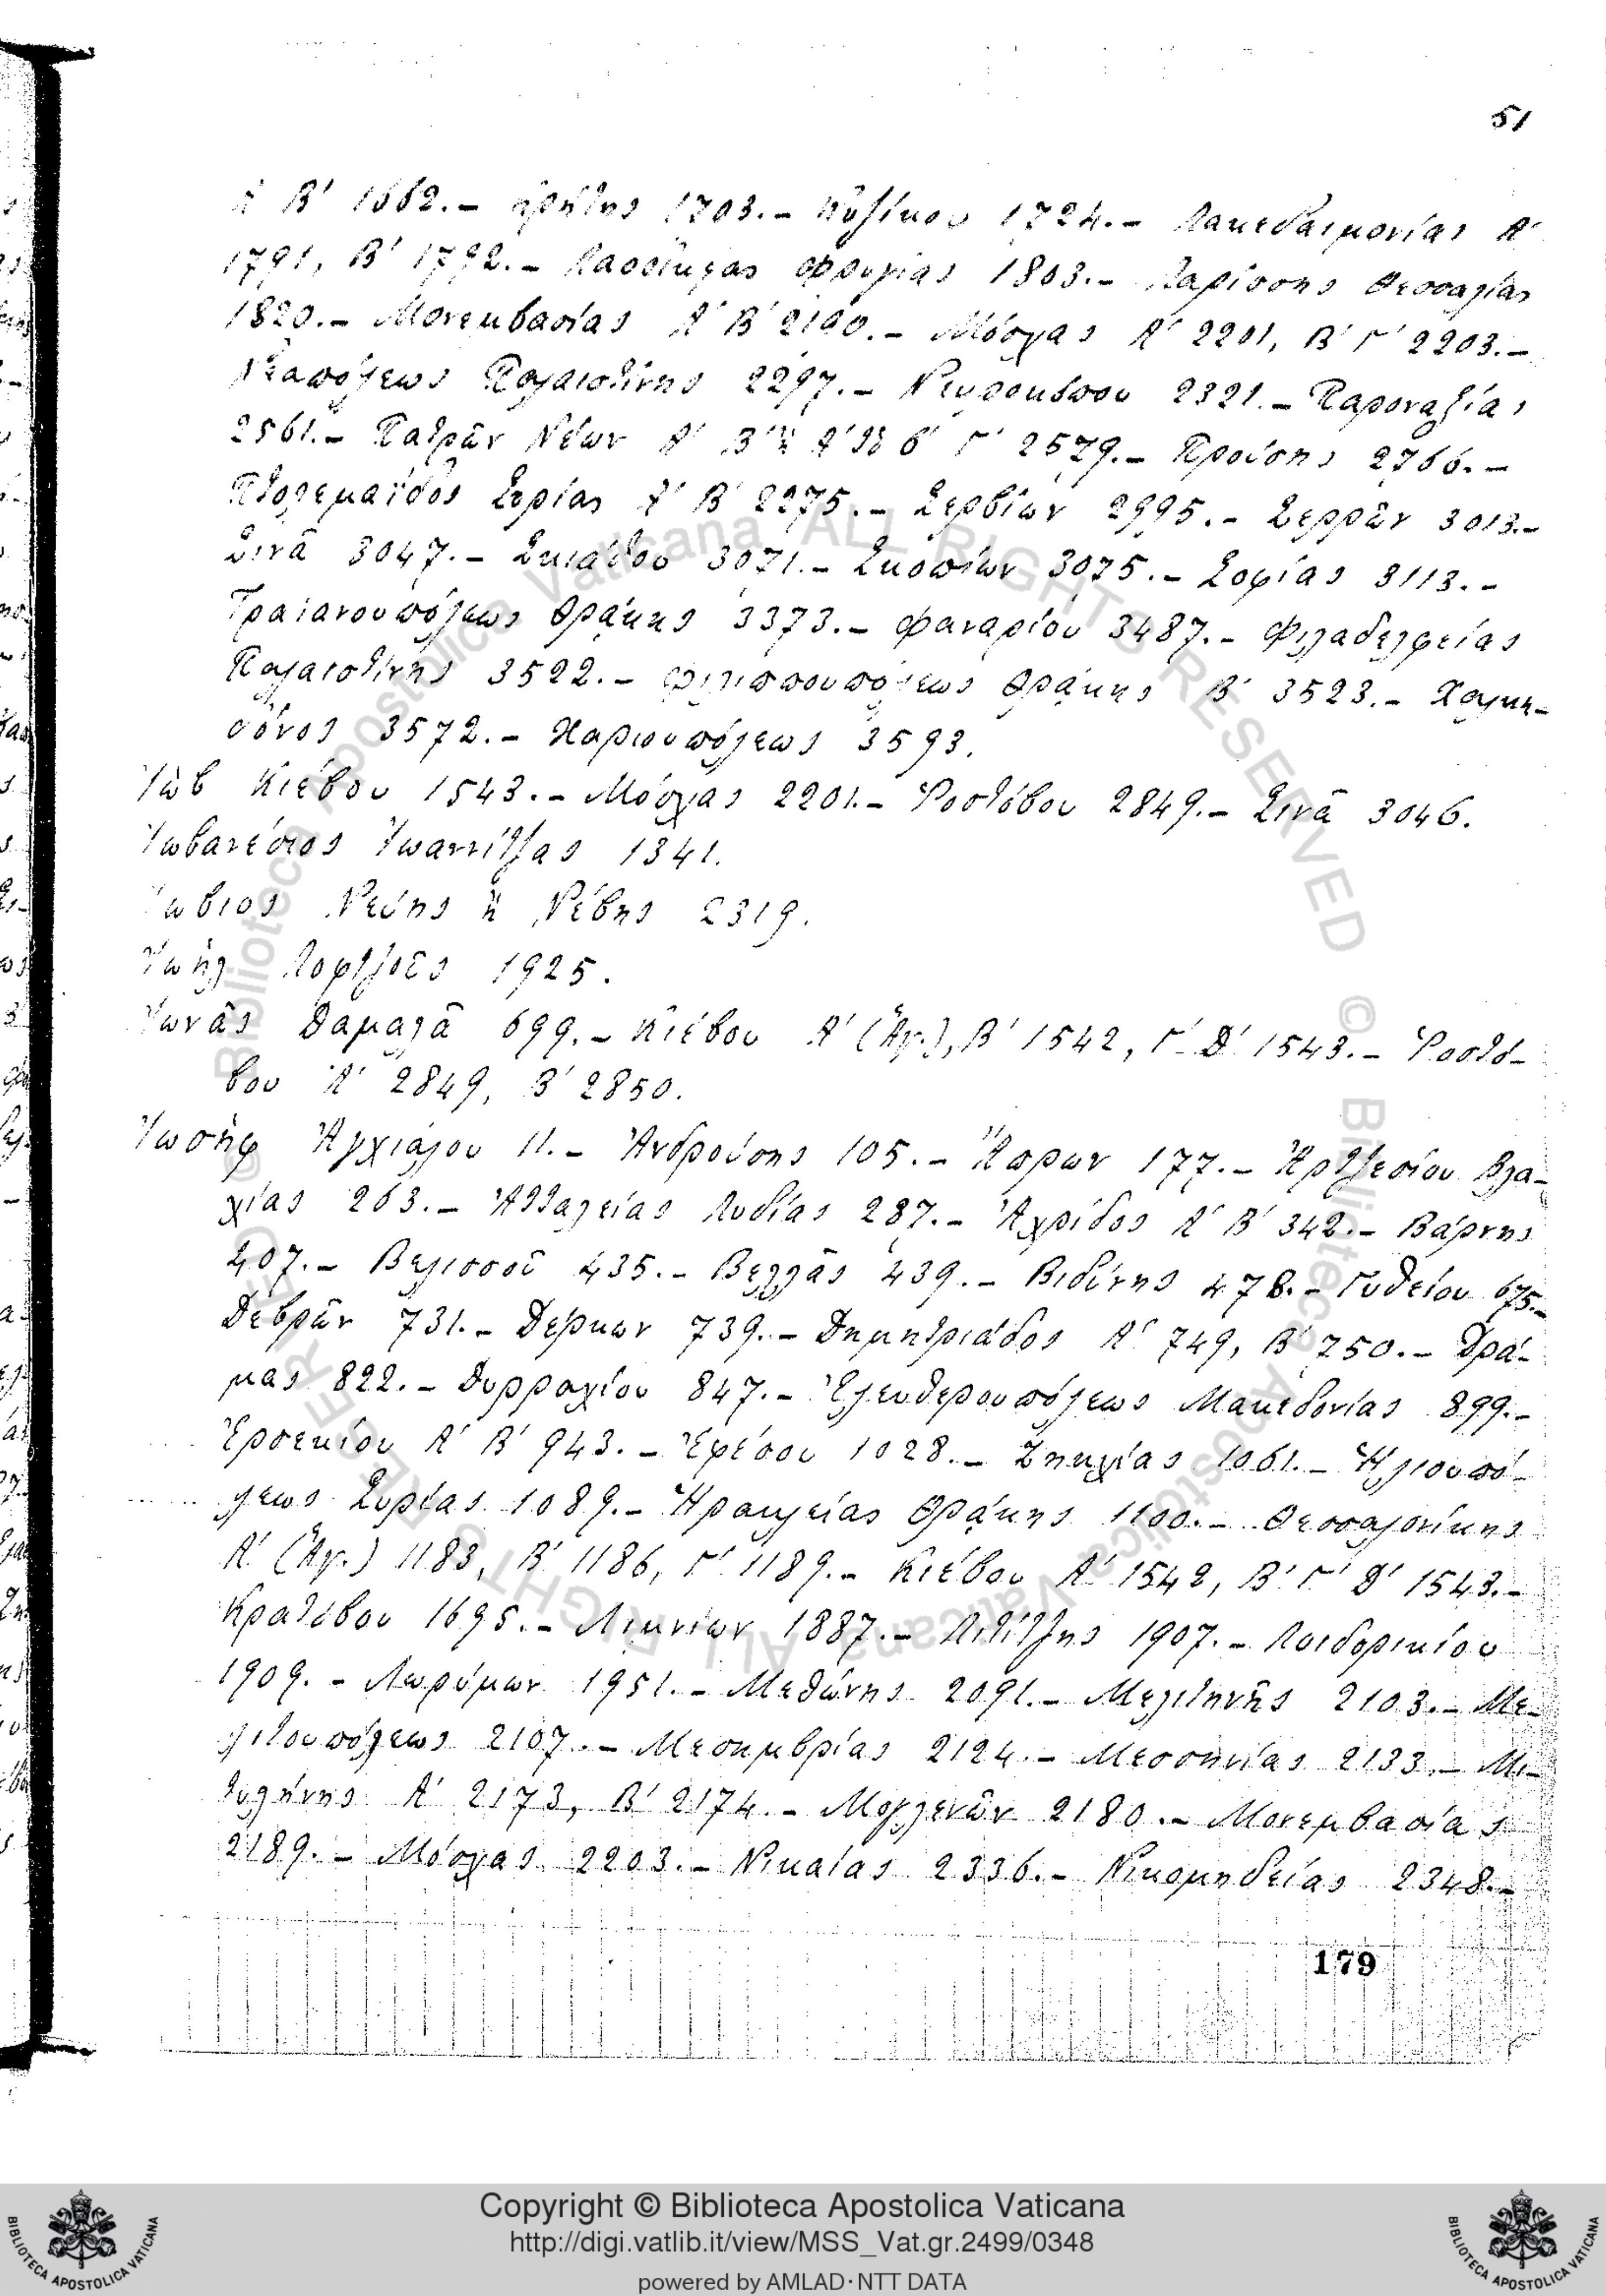 51
Β′ 1662.- Κρήτης 1703.- Κυζίκου 1724.- Λακεδαιμονίας Α′
1791, Β′ 1792.- Λαοδικείας Φρυγίας 1803.- Λαρίσσης Θεσσαλίας
1820.- Μονεμβασίας Α′ Β′ 2190.- Μόσχας Α′ 2201, Β′ Γ′ 2203.-
Νεαπόλεως Παλαιστίνης 2297.- Νευροκόπου 2321.- Παροναξίας
2561.- Πατρῶν Νέων Α′ Γ′ 2579.- Προύσης 2766.-
Πτολεμαΐδος Συρίας Α′ Β′ 2275.- Σερβίων 2995.- Σερρῶν 3013.-
Σινᾶ 3047.- Σκιάθου 3071.- Σκοπίων 3075.- Σοφίας 3113.-
Τραϊανουπόλεως Θρᾴκης 3373.- Φαναρίου 3487.- Φιλαδελφείας
Παλαιστίνης 3522.- Φιλιππουπόλεως Θρᾴκης Β′ 3523.- Χαλκη-
δόνος 3572.- Χαριουπόλεως 3593.
Ἰὼβ Κιέβου 1543.- Μόσχας 2201.- Ῥοστόβου 2849.- Σινᾶ 3046.
Ἰωβανέσιος Ἰωαννίτζας 1341.
Ἰώβιος Νεύης ἢ Νέβης 2319.
Ἰωὴλ Λοφτζοῦς 1925.
Ἰωνᾶς Δαμαλᾶ 699.- Κιέβου Α′ (Ἅγ.), Β′ 1542, Γ′ Δ′ 1543.- Ῥοστό-
βου Α′ 2849, Β′ 2850.
Ἰωσὴφ Ἀγχιάλου 11.- Ἀνδρούσης 105.- Ἄπρων 177.- Ἀρτζεσίου Βλα-
χίας 263.- Ἀτταλείας Λυδίας 287.- Ἀχρίδος Α′ Β′ 342.- Βάρνης
407.- Βελισσοῦ 435.- Βελλᾶς 439.- Βιδύνης 478.- Γυθείου 675.-
Δεβρῶν 731.- Δέρκων 739.- Δημητριάδος Α′ 749, Β′ 750.- Δρά-
μας 822.- Δυρραχίου 847.- Ἐλευθερουπόλεως Μακεδονίας 899.-
Ἐρσεκίου Α′ Β′ 943.- Ἐφέσου 1028.- Ζηκχίας 1061.- Ἡλιουπό-
λεως Συρίας 1089.- Ἡρακλείας Θρᾴκης 1100.- Θεσσαλονίκης
Α′ (Ἅγ.) 1183, Β′ 1186, Γ′ 1189.- Κιέβου Α′ 1542, Β′ Γ′ Δ′ 1543.-
Κρατόβου 1695.- Λιμνίων 1887.- Λιτίτζης 1907.- Λοιδορικίου
1909.- Λωρύμων 1951.- Μεθώνης 2091.- Μελιτηνῆς 2103.- Με-
λιτουπόλεως 2107.- Μεσημβρίας 2124.- Μεσσηνίας 2133.- Μι-
τυλήνης Α′ 2173, Β′ 2174.- Μογλενῶν 2180.- Μονεμβασίας
2189.- Μόσχας 2203.- Νικαίας 2336.- Νικομηδείας 2348.-
179
© Biblioteca Apostolica Vaticana ALL RIGHTS RESERVED
Copyright © Biblioteca Apostolica Vaticana
http://digi.vatlib.it/view/MSS_Vat.gr.2499/0348
powered by AMLAD·NTT DATA
BIBLIOTECA APOSTOLICA VATICANA
BIBLIOTECA APOSTOLICA VATICANA